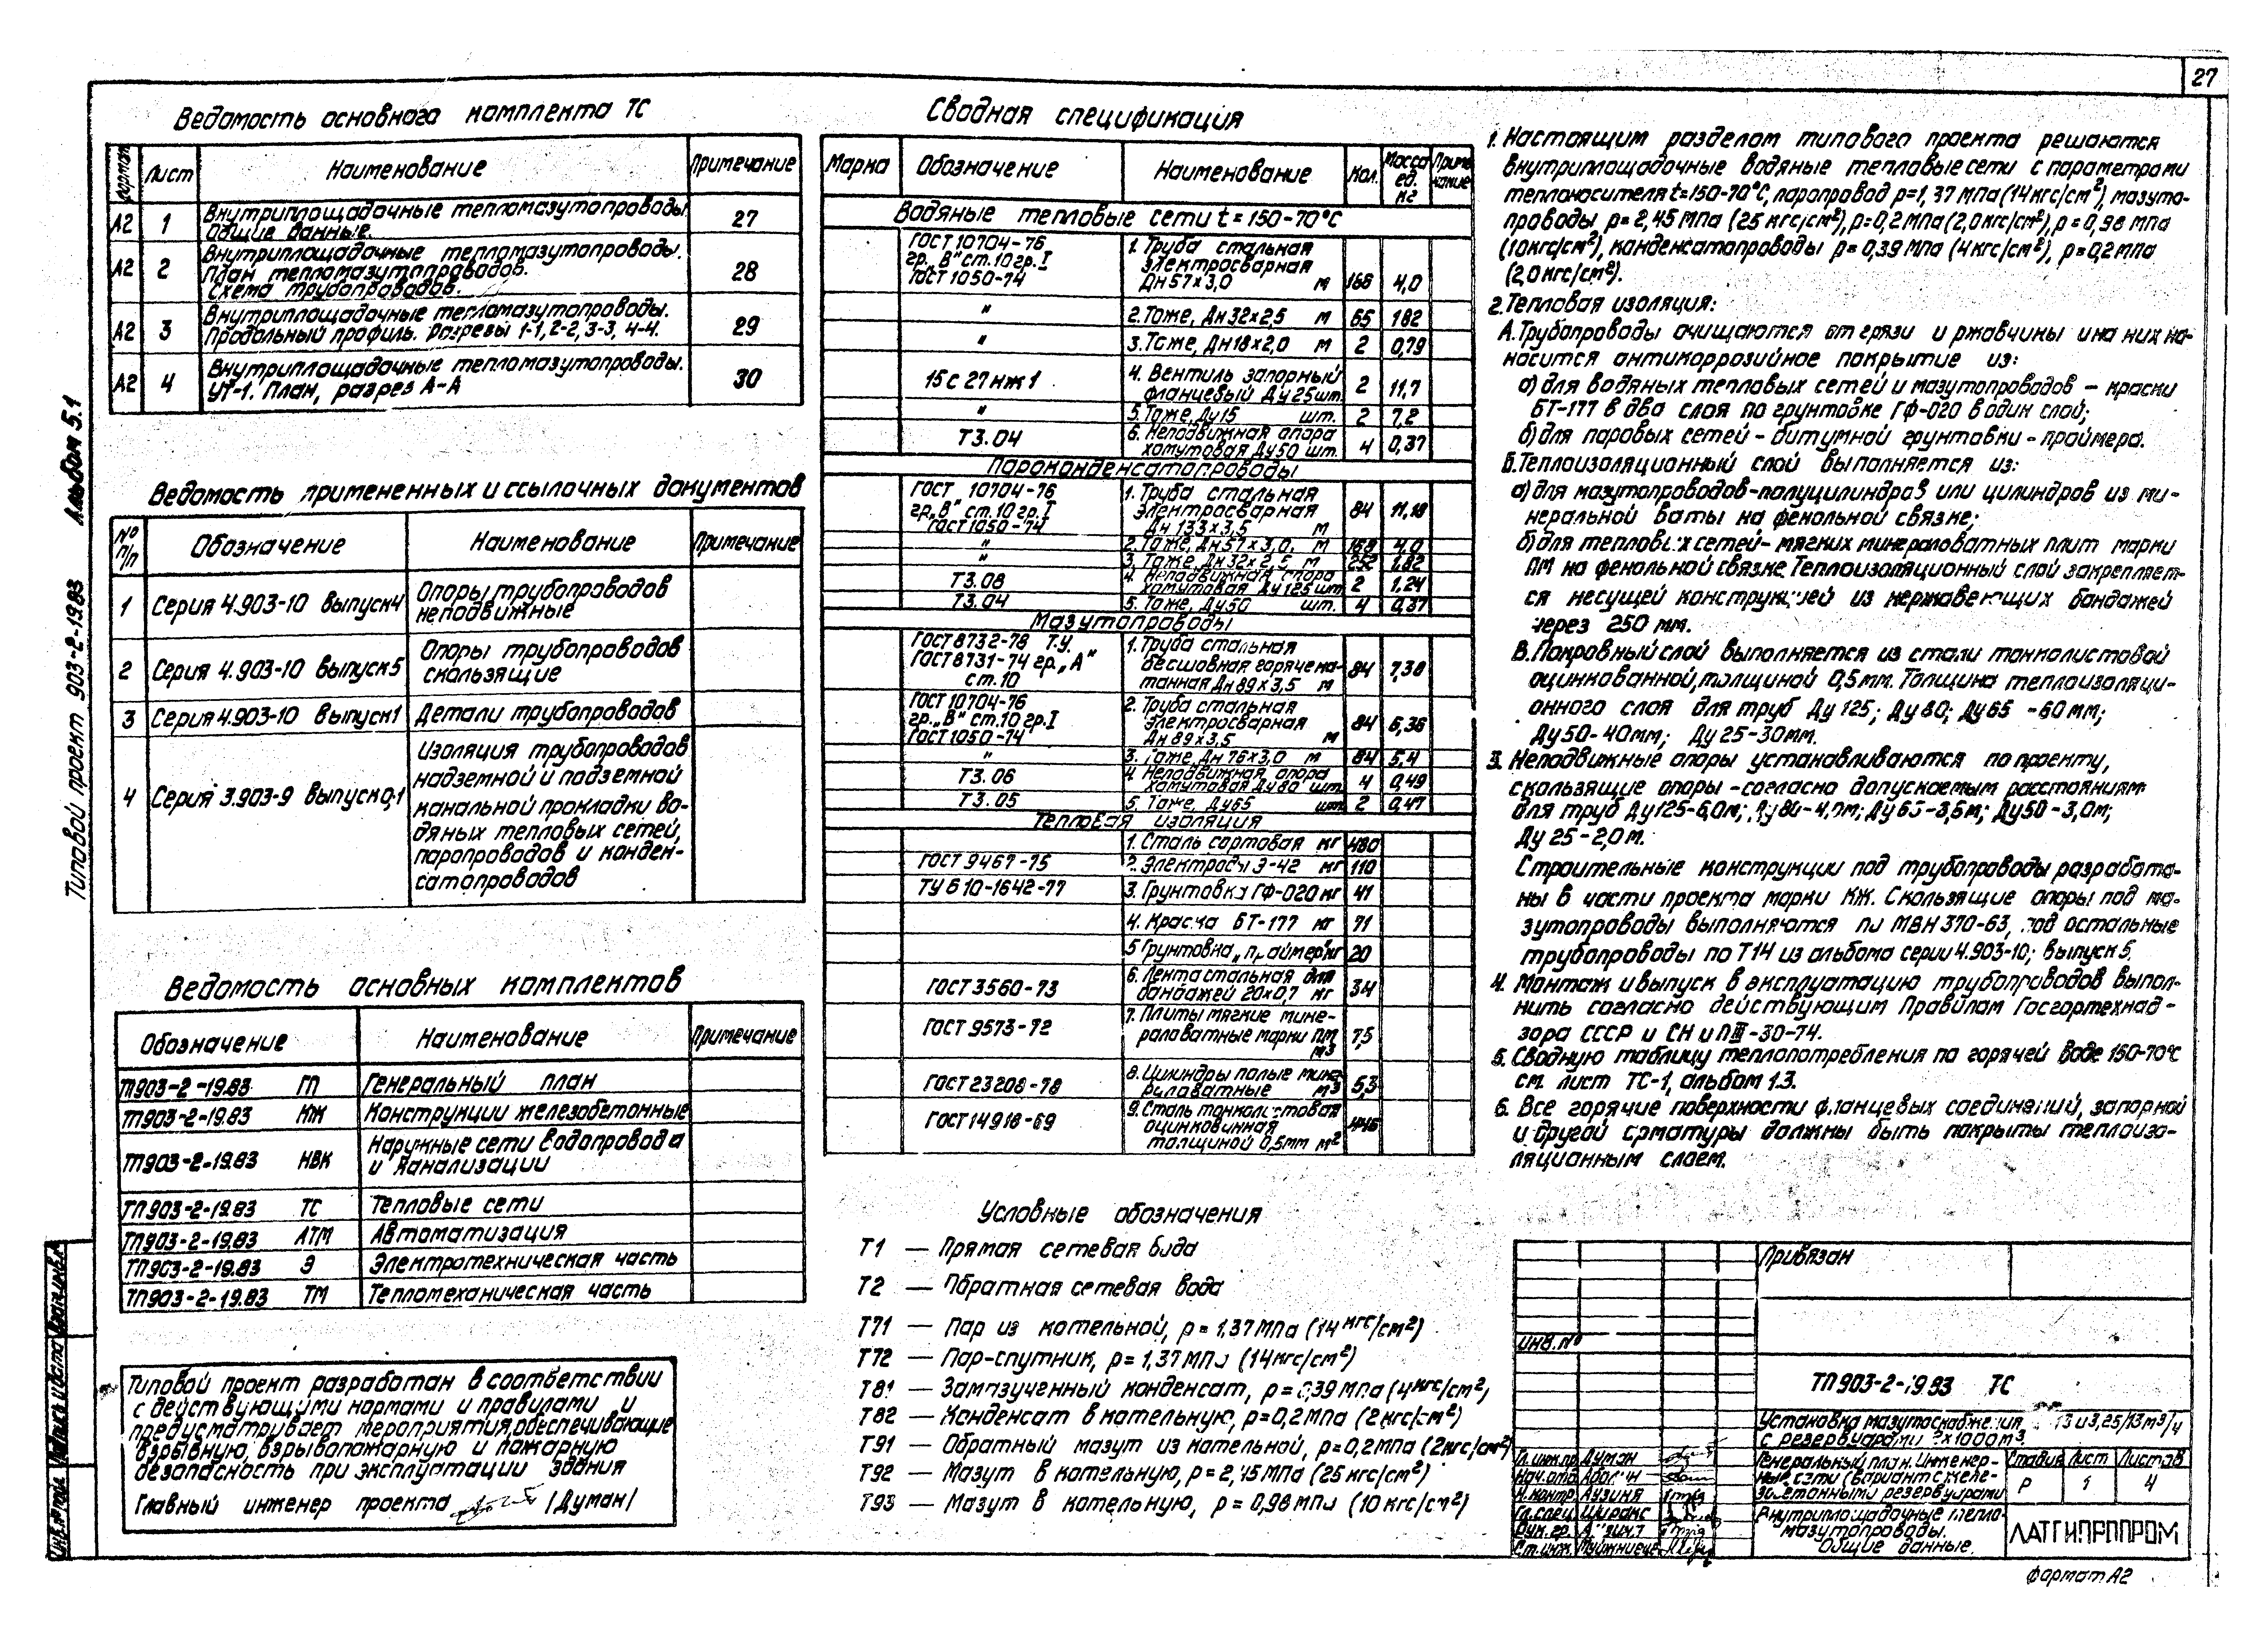 27
Типовой проект 903-2-19.83 Альбом 5.1
Ведомость основного комплекта ТС
Формат Лист Наименование Примечание
А2 1 Внутриплощадочные тепломазутопроводы. Общие данные. 27
А2 2 Внутриплощадочные тепломазутопроводы. План тепломазутопроводов. Схема трубопроводов. 28
А2 3 Внутриплощадочные тепломазутопроводы. Продольный профиль. Разрезы 1-1, 2-2, 3-3, 4-4. 29
А2 4 Внутриплощадочные тепломазутопроводы. УТ-1. План, разрез А-А 30
Ведомость примененных и ссылочных документов
№ п/п Обозначение Наименование Примечание
1 Серия 4.903-10 выпуск 4 Опоры трубопроводов неподвижные
2 Серия 4.903-10 выпуск 5 Опоры трубопроводов скользящие
3 Серия 4.903-10 выпуск 1 Детали трубопроводов
4 Серия 3.903-9 выпуск 0,1 Изоляция трубопроводов
надземной и подземной
канальной прокладки во-
дяных тепловых сетей,
паропроводов и конден-
сатопроводов
Ведомость основных комплектов
Обозначение Наименование Примечание
ТП903-2-19.83 ГП Генеральный план
ТП903-2-19.83 КЖ Конструкции железобетонные
ТП903-2-19.83 НВК Наружные сети водопровода и канализации
ТП903-2-19.83 ТС Тепловые сети
ТП903-2-19.83 АТМ Автоматизация
ТП903-2-19.83 Э Электротехническая часть
ТП903-2-19.83 ТМ Тепломеханическая часть
Типовой проект разработан в соответствии
с действующими нормами и правилами и
предусматривает мероприятия, обеспечивающие
взрывную, взрывопожарную и пожарную
безопасность при эксплуатации здания
Главный инженер проекта /Думан/
Сводная спецификация
Марка Обозначение Наименование Кол. Масса ед. кг Примечание
Водяные тепловые сети t = 150-70°С
ГОСТ 10704-76 гр. „В" ст. 10 гр. I ГОСТ 1050-74 1. Труба стальная электросварная Дн 57×3,0 м 168 4,0
" 2. Тоже, Дн 32×2,5 м 65 182
" 3. Тоже, Дн 18×2,0 м 2 0,79
15с 27нж 1 4. Вентиль запорный фланцевый Ду 25 шт. 2 11,7
" 5. Тоже, Ду 15 шт. 2 7,2
Т3.04 6. Неподвижная опора хомутовая Ду 50 шт. 4 0,37
Пароконденсатопроводы
ГОСТ 10704-76 гр. „В" ст. 10 гр. I ГОСТ 1050-74 1. Труба стальная электросварная Дн 133×3,5 м 84 11,18
" 2. Тоже, Дн 57×3,0, м 168 4,0
" 3. Тоже, Дн 32×2,5 м 252 1,82
Т3.08 4. Неподвижная опора хомутовая Ду 125 шт 2 1,24
Т3.04 5. Тоже, Ду 50 шт. 4 0,37
Мазутопроводы
ГОСТ 8732-78 Т.У. ГОСТ 8731-74 гр. „А" ст. 10 1. Труба стальная бесшовная горячека- танная Дн 89×3,5 м 84 7,38
ГОСТ 10704-76 гр. „В" ст. 10 гр. I ГОСТ 1050-74 2. Труба стальная электросварная Дн 89×3,5 м 84 6,36
" 3. Тоже, Дн 76×3,0 м 84 5,4
Т3.06 4. Неподвижная опора хомутовая Ду 80 шт. 4 0,49
Т3.05 5. Тоже, Ду 65 шт. 2 0,47
Тепловая изоляция
1. Сталь сортовая кг 480
ГОСТ 9467-75 2. Электроды Э-42 кг 110
ТУ 6 10-1642-77 3. Грунтовка ГФ-020 кг 41
4. Краска БТ-177 кг 71
5 Грунтовка „праймер" кг 20
ГОСТ 3560-73 6. Лента стальная для бандажей 20×0,7 кг 34
ГОСТ 9573-72 7. Плиты мягкие мине- раловатные марки ПМ м3 7,5
ГОСТ 23208-78 8. Цилиндры полые мине- раловатные м3 5,3
ГОСТ 14918-69 9. Сталь тонколистовая оцинкованная толщиной 0,5мм м2
Условные обозначения
Т1 — Прямая сетевая вода
Т2 — Обратная сетевая вода
Т71 — Пар из котельной, р = 1,37 МПа (14 кгс/см²)
Т72 — Пар-спутник, р = 1,37 МПа (14 кгс/см²)
Т81 — Замазученный конденсат, р = 0,39 МПа (4 кгс/см²)
Т82 — Конденсат в котельную, р = 0,2 МПа (2 кгс/см²)
Т91 — Обратный мазут из котельной, р = 0,2 МПа (2 кгс/см²)
Т92 — Мазут в котельную, р = 2,45 МПа (25 кгс/см²)
Т93 — Мазут в котельную, р = 0,98 МПа (10 кгс/см²)
1. Настоящим разделом типового проекта решаются
внутриплощадочные водяные тепловые сети с параметрами
теплоносителя t=150-70°С, паропровод р=1,37 МПа (14кгс/см²), мазуто-
проводы р=2,45 МПа (25 кгс/см²), р=0,2 МПа (2,0кгс/см²), р = 0,98 МПа
(10кгс/см²), конденсатопроводы р = 0,39 МПа (4кгс/см²), р=0,2 МПа
(2,0кгс/см²).
2. Тепловая изоляция:
А. Трубопроводы очищаются от грязи и ржавчины и на них на-
носится антикоррозийное покрытие из:
а) для водяных тепловых сетей и мазутопроводов – краски
БТ-177 в два слоя по грунтовке ГФ-020 в один слой;
б) для паровых сетей – битумной грунтовки – праймера.
Б. Теплоизоляционный слой выполняется из:
а) для мазутопроводов-полуцилиндров или цилиндров из ми-
неральной ваты на фенольной связке;
б) для тепловых сетей – мягких минераловатных плит марки
ПМ на фенольной связке. Теплоизоляционный слой закрепляет-
ся несущей конструкцией из нержавеющих бандажей
через 250 мм.
В. Покровный слой выполняется из стали тонколистовой
оцинкованной, толщиной 0,5 мм. Толщина теплоизоляци-
онного слоя для труб Ду 125; Ду 80; Ду 65 – 60 мм;
Ду 50-40мм; Ду 25-30мм.
3. Неподвижные опоры устанавливаются по проекту,
скользящие опоры – согласно допускаемым расстояниям
для труб Ду 125-6,0м; Ду 80-4,0м; Ду 65-3,5м; Ду 50-3,0м;
Ду 25-2,0м.
Строительные конструкции под трубопроводы разработа-
ны в части проекта марки КЖ. Скользящие опоры под ма-
зутопроводы выполняются по МВН 370-63, под остальные
трубопроводы по Т14 из альбома серии 4.903-10; выпуск 5.
4. Монтаж и выпуск в эксплуатацию трубопроводов выпол-
нить согласно действующим Правилам Госгортехнад-
зора СССР и СНиП III-30-74.
5. Сводную таблицу теплопотребления по горячей воде 150-70°С
см. лист ТС-1, альбом 1.3.
6. Все горячие поверхности фланцевых соединений, запорной
и другой арматуры должны быть покрыты теплоизо-
ляционным слоем.
Привязан
Инв. №
ТП 903-2-19.83 ТС
Установка мазутоснабжения 13 и 3,25/13 м³/ч
с резервуарами 2×1000м³.
Гл. инж. пр. Думан
Нач. отд.
Н. контр. Аузиня
Гл. спец. Циранс
Рук. гр.
Ст. инж.
Генеральный план. Инженер-
ные сети (вариант с желе-
зобетонными резервуарами
Стадия Лист Листов
Р 1 4
Внутриплощадочные тепло-
мазутопроводы.
Общие данные.
ЛАТГИПРОПРОМ
Формат А2
Инв. № подл. Подпись и дата Взам. инв. №